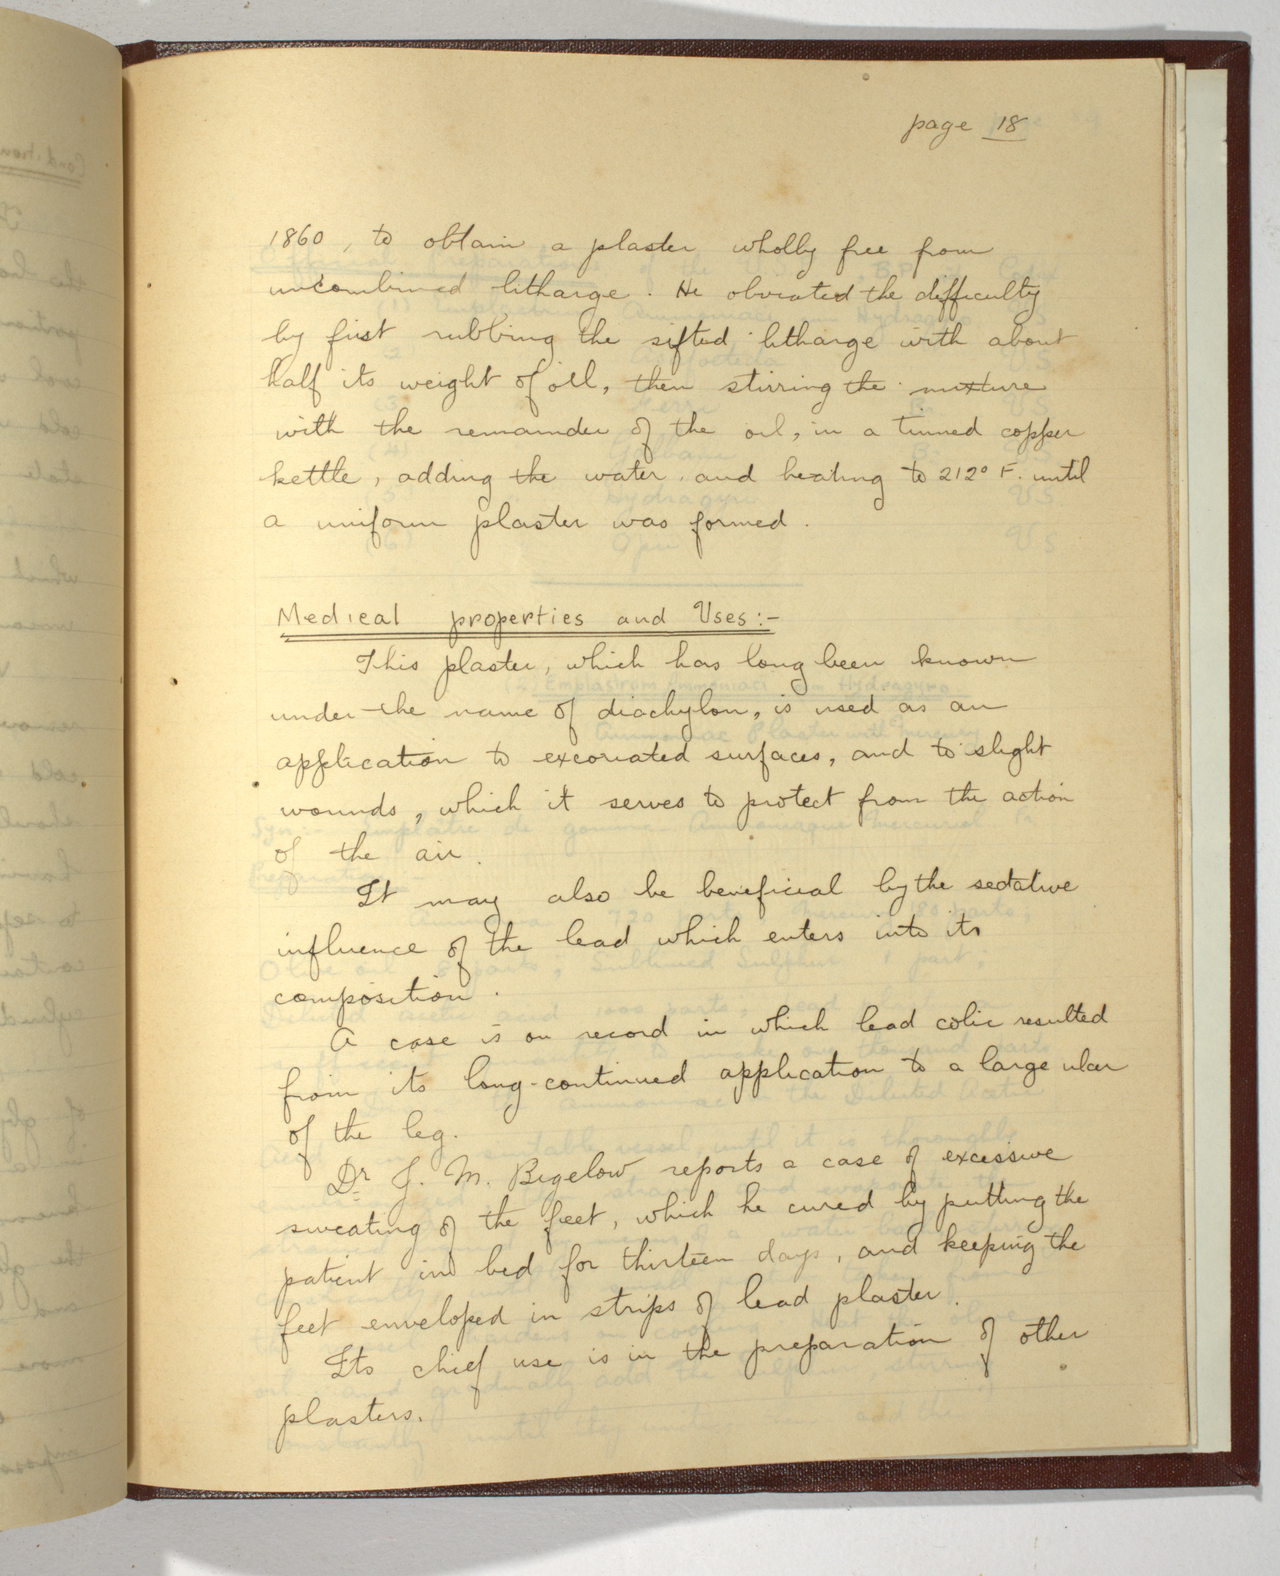 page 18
1860, to obtain a plaster wholly free from
uncombined litharge. He obviated the difficulty
by first rubbing the sifted litharge with about
half its weight of oil, then stirring the mixture
with the remainder of the oil, in a tinned copper
kettle, adding the water and heating to 212° F. until
a uniform plaster was formed.
Medical properties and Uses:-
This plaster, which has long been known
under the name of diachylon, is used as an
application to excoriated surfaces, and to slight
wounds, which it serves to protect from the action
of the air.
It may also be beneficial by the sedative
influence of the lead which enters into its
composition.
A case is on record in which lead colic resulted
from its long-continued application to a large ulcer
of the leg.
Dr J. M. Bigelow reports a case of excessive
sweating of the feet, which he cured by putting the
patient in bed for thirteen days, and keeping the
feet enveloped in strips of lead plaster.
Its chief use is in the preparation of other
plasters.